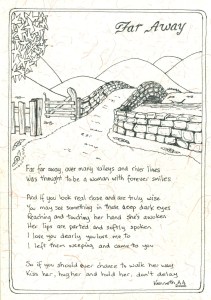 Far Away
Far far away over many valleys and river lines
Was thought to be a woman with forever smiles
And if you look real close and are truly wise
You may see something in those deep dark eyes
Reaching and touching her hand she's awoken
Her lips are parted and softly spoken
I love you dearly you love me to
I left them weeping and came to you
So if you should ever chance to walk her way
Kiss her, hug her and hold her, don't delay
Kenneth